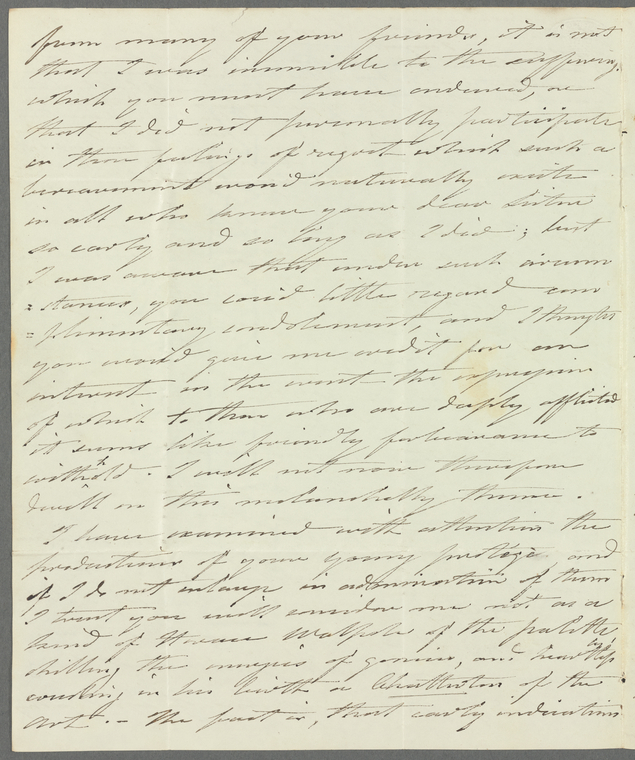 from many of your friends, it is not
that I was insensible to the suffering
which you must have endured, or
that I did not personally participate
in those feelings of regret which such a
bereavement would naturally excite
in all who knew your dear Sister
so early and so long as I did; but
I was aware that under such circum
=stances, you could little regard com
=plimentary condolement, and I thought
you would give me credit for an
interest in the event the expression
of which to those who are deeply afflicted
it seems like friendly forbearance to
withhold. I will not now therefore
dwell on this melancholy theme.
I have examined with attention the
productions of your young protégé and
if I do not enlarge in admiration of them
I trust you will consider me not as a
kind of Horace Walpole of the palette
chilling the energies of genius, and
crushing in his birth a Chatterton of the
art. — The fact is, that early indications